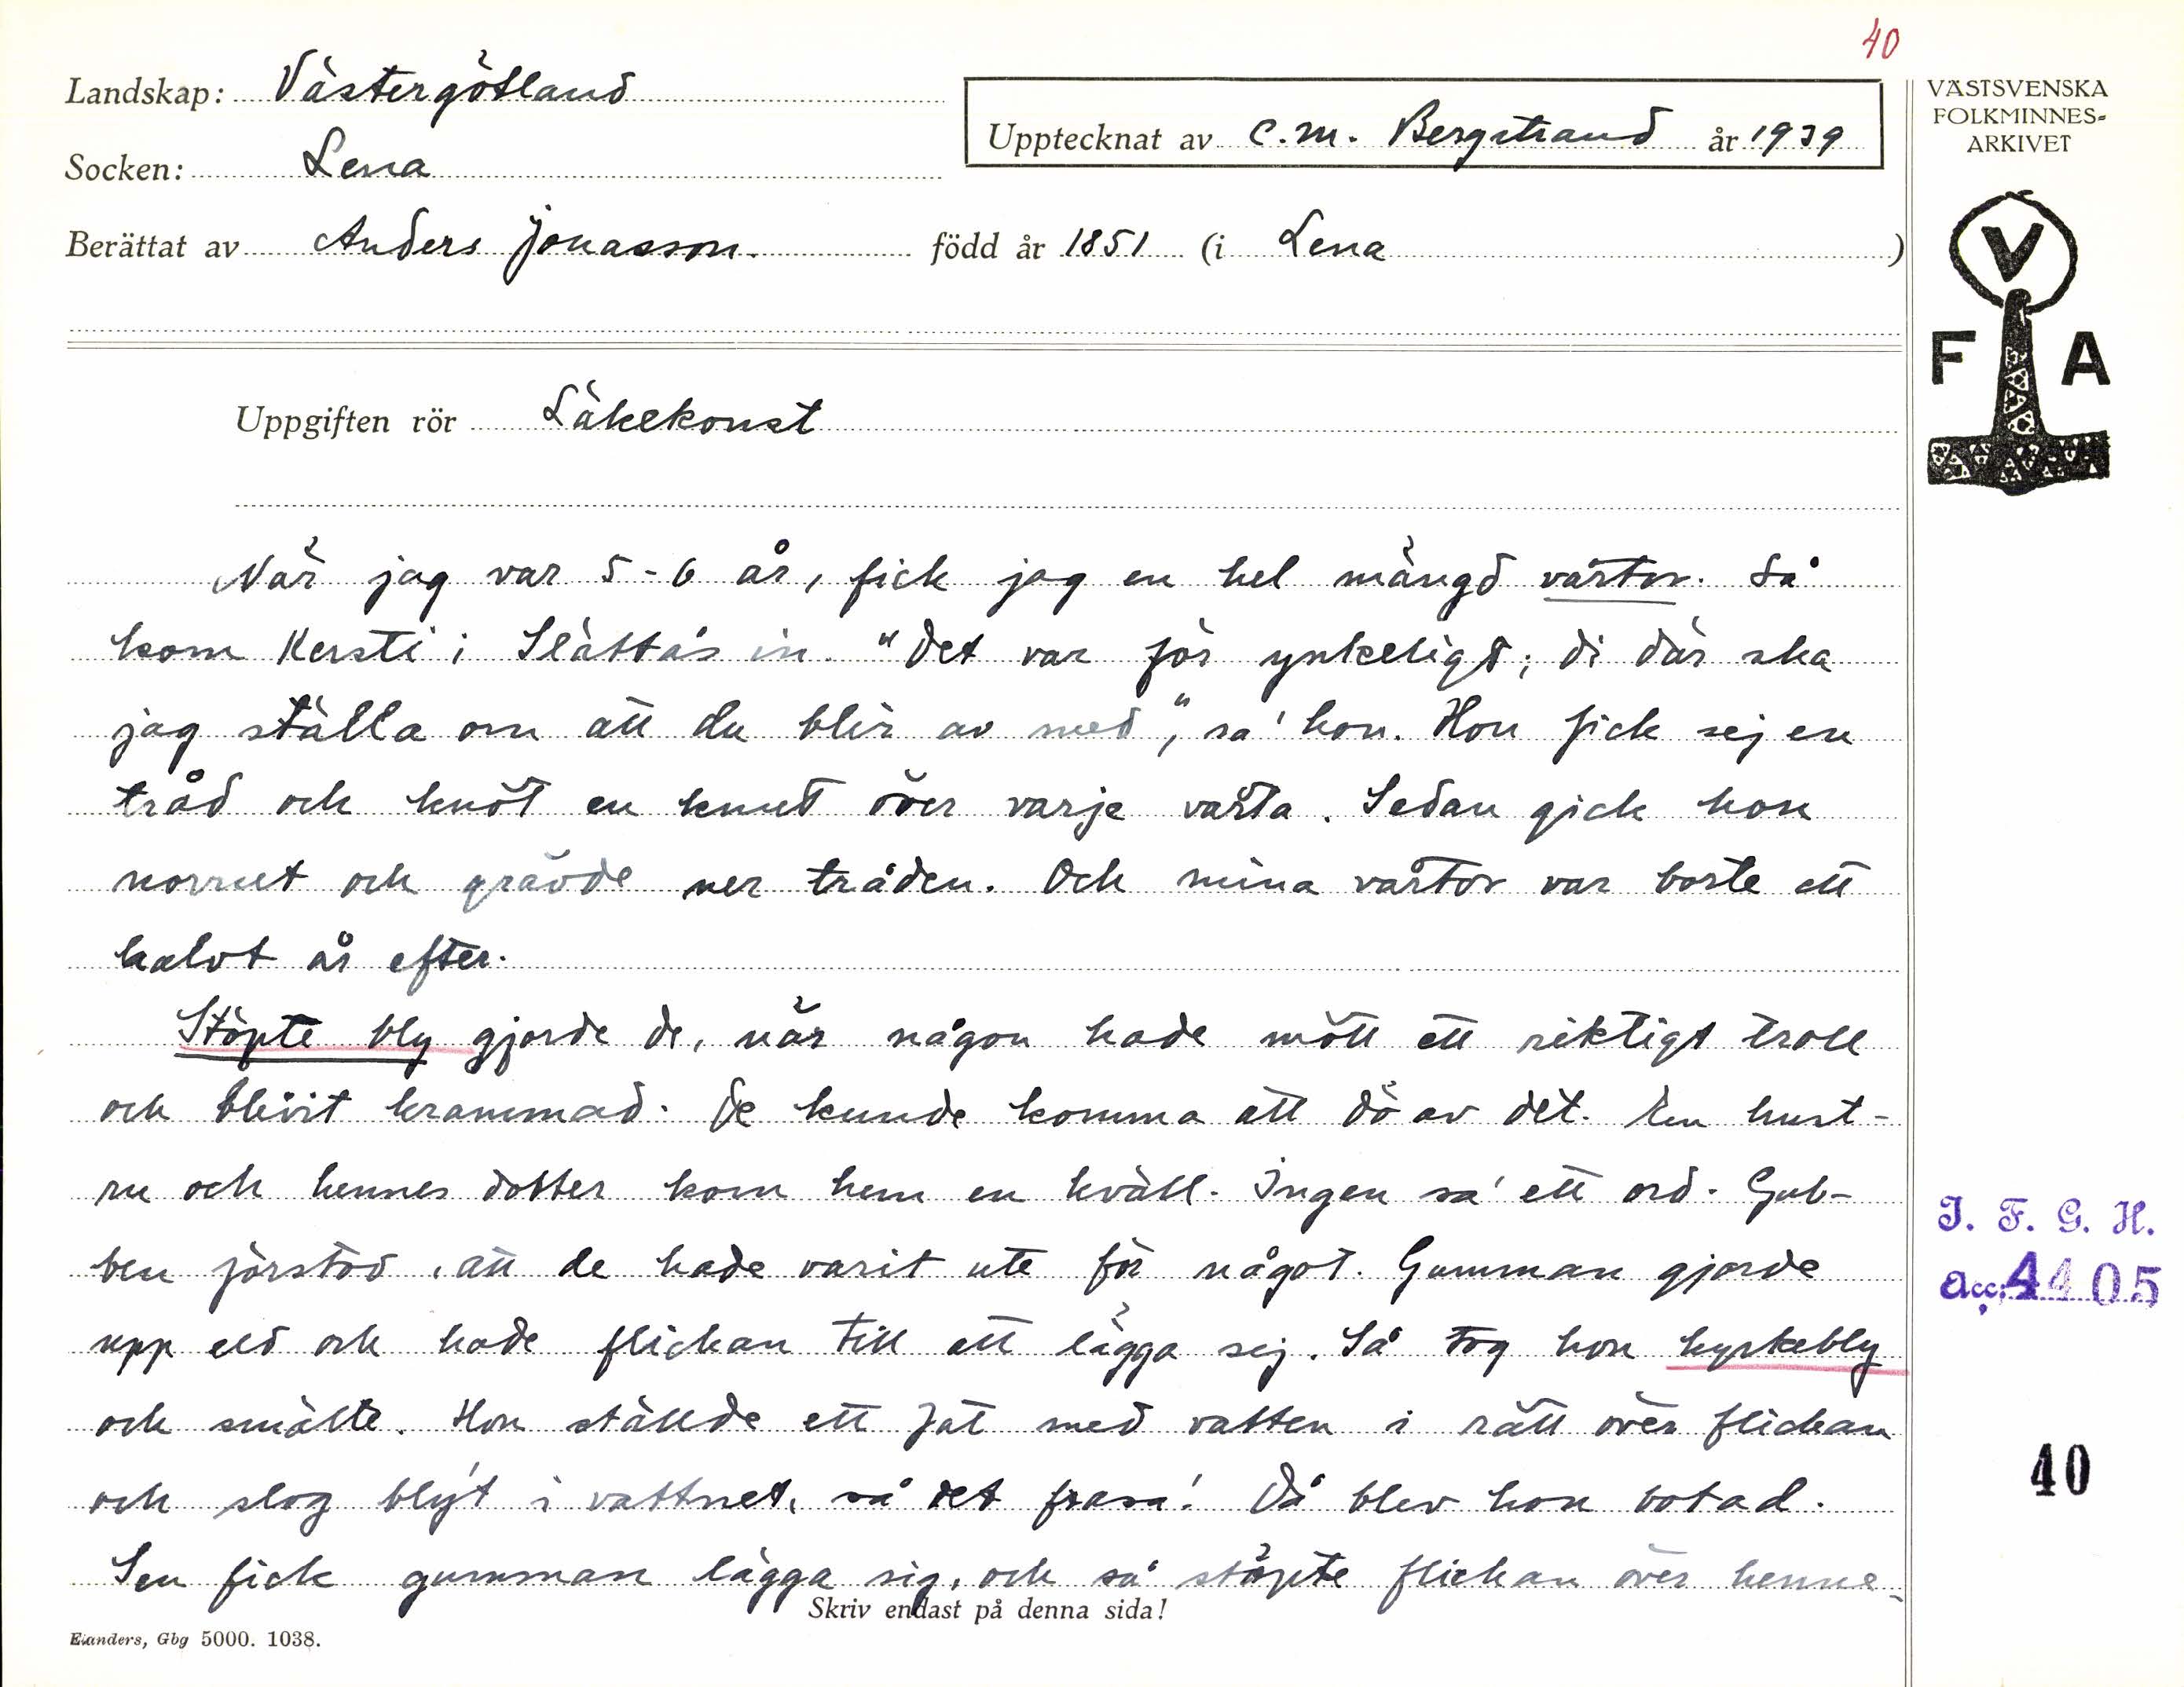 40
Landskap: Västergötland
Upptecknat av C.M. Bergstrand år 1939
Socken: Lena
Berättat av Anders Jonasson. född år 1851 (i Lena)
VÄSTSVENSKA
FOLKMINNES-
ARKIVET
V
F A
Uppgiften rör Läkekonst
När jag var 5-6 år, fick jag en hel mängd vårtor. Så
kom Kersti i Slättås in. "Det var för ynkeligt; di där ska
jag ställa om att du blir av med", sa' hon. Hon fick sej en
tråd och knöt en knut över varje vårta. Sedan gick hon
norrut och grävde ner tråden. Och mina vårtor var borte ett
halvt år efter.
Stöpte bly gjorde de, när någon hade mött ett riktigt troll
och blivit krammad. De kunde komma att dö av det. En hust-
ru och hennes dotter kom hem en kväll. Ingen sa' ett ord. Gub-
ben förstod, att de hade varit ute för något. Gumman gjorde
upp eld och hade flickan till att lägga sej. Så tog hon kyrkebly
och smälte. Hon ställde ett fat med vatten i rätt över flickan
och slog blyt i vattnet, så det frasa! Då blev hon botad.
Sen fick gumman lägga sig, och så stöpte flickan över henne.
Skriv endast på denna sida!
Elanders, Gbg 5000. 1038.
I. F. G. H.
Acc. 4405
40